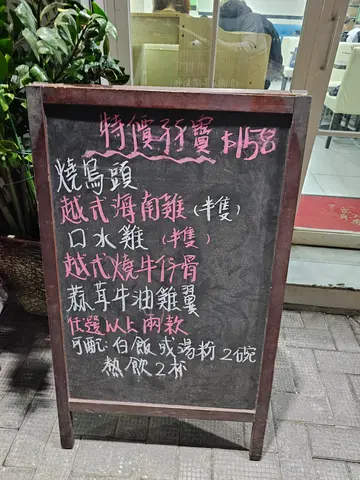 特價孖寶 $158
燒鳥頭
越式海南雞(半隻)
口水雞(半隻)
越式燒牛仔骨
蒜茸牛油雞翼
任選以上兩款
可配:白飯或湯粉2碗
熱飲2杯